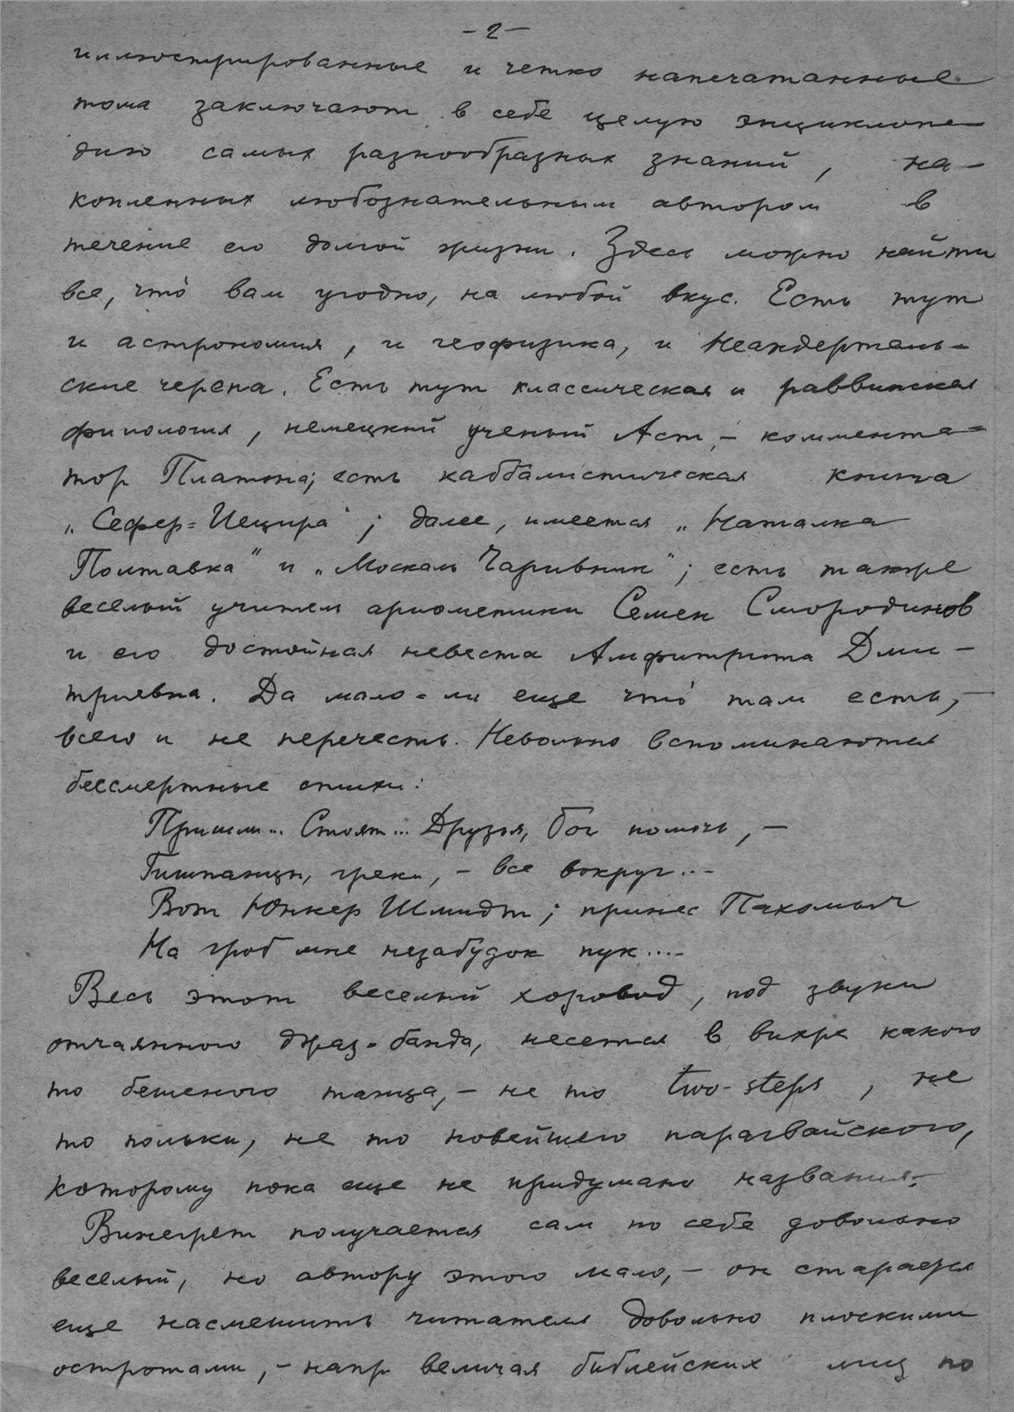 – 2 –
иллюстрированные и четко напечатанные
тома заключают в себе целую энциклопе–
дию самых разнообразных знаний, на–
копленных любознательным автором в
течение его долгой жизни. Здесь можно найти
все, что́ вам угодно, на любой вкус. Есть тут
и астрономия, и геофизика, и Неандерталь–
ские черепа. Есть тут классическая и раввинская
филология, немецкий ученый Аст, – коммента=
тор Платона; есть каббалистическая книга
„Сефер=Иецира“; далее, имеется „Наталка
Полтавка“ и „Москаль Чаривник“; есть также
веселый учитель арифметики Семен Смородинов
и его достойная невеста Амфитрита Дми–
триевна. Да мало-ли еще что́ там есть, –
всего и не перечесть. Невольно вспоминаются
бессмертные стихи:
Пришли... Стоят... Друзья, бог помочь, –
Гишпанцы, греки, – все вокруг...–
Вот Юнкер Шмидт; принес Пахомыч
На гроб мне незабудок пук....
Весь этот веселый хоровод, под звуки
отчаянного джаз-банда, несется в вихре какого
то бешеного танца, – не то two-steps, не
то польки, не то новейшего парагвайского,
которому пока еще не придумано названия.–
Винегрет получается сам по себе довольно
веселый, но автору этого мало, – он старается
еще насмешить читателя довольно плоскими
остротами, – напр величая библейских лиц по